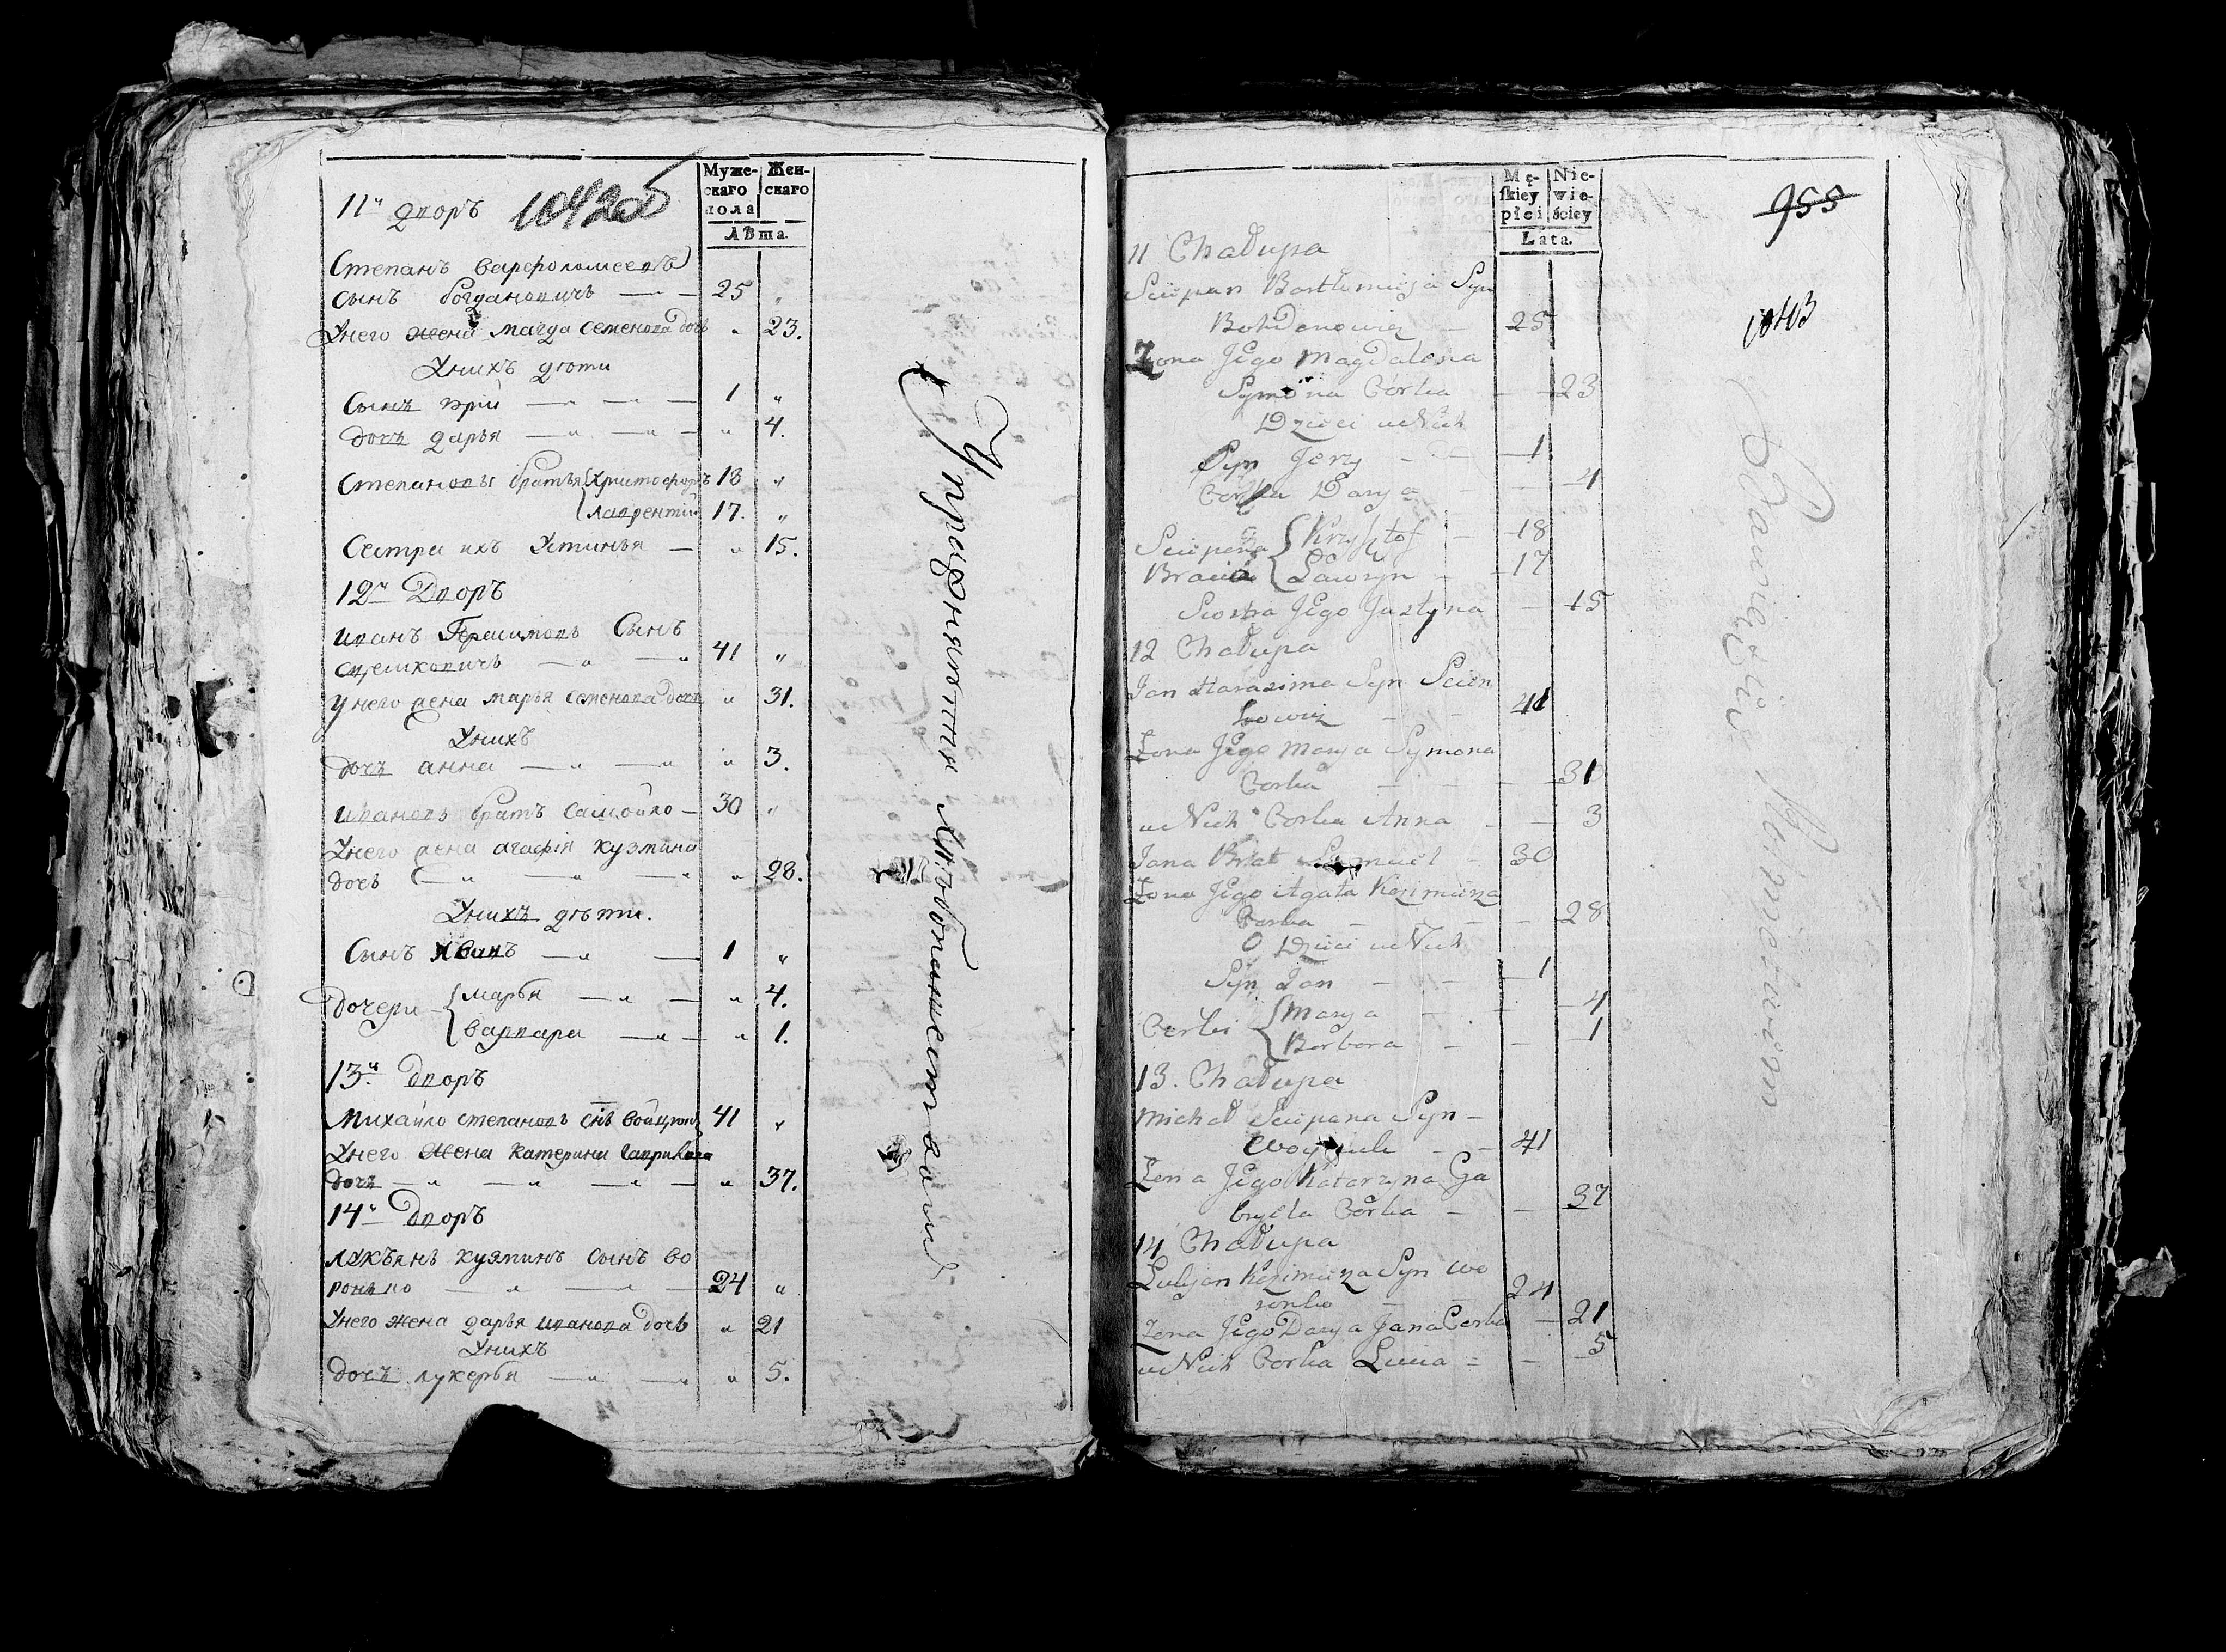 11й дворъ 1042об
Муже-
скаго
пола
Жен-
скаго
Лѣта.
Степанъ варфоломеевъ
сынъ богдановичъ — 25 "
Унего жена магда семенова дочь " 23.
Унихъ дѣти
Сынъ юрій — " — 1 "
дочь дарья — " — " 4.
Степановы братья { христофоръ 18 "
{ лаврентий 17. "
Сестра ихъ Устинья — " 15.
12й Дворъ
иванъ Герасимовъ Сынъ
сценковичъ — " — " 41 "
унего жена марья семенова дочь " 31.
Унихъ
дочь анна — " — " " 3.
ивановъ братъ самойло — 30 "
Унего жена агафія кузмина
дочь — " — " — " " 28.
Унихъ дѣти.
Сынъ иванъ — " — 1 "
дочери { марья — " — " 4.
{ варвара — " — " 1.
13й дворъ
Михайло степановъ снъ 41 "
Унего жена катерина гаврилова
дочь — " — " — " — " 37.
14й дворъ
лукьянъ кузминъ сынъ во
ронко — " — " — 24 "
Унего жена дарья иванова дочь " 21
Унихъ
дочь лукерья — " — " " 5.
Упражняются Хлѣбопашествомъ
Mę-
skiey
płci
Nie-
wie-
ściey
Lata.
955
1043
11 Chałupa
Sciepan Bartłomieja Syn
Bohdanowicz — 25
Zona Jego Magdalena
Symona Corka — 23
Dzieci u Nich
Syn Jerzy — 1
Corka Darya — 4
Sciepana { Krzysztof — 18
Bracia { Ławryn — 17
Siostra Jego Justyna — 15
12 Chałupa
Jan Harasima Syn Scien
kowicz — 41
Zona Jego Marya Symona
Corka — 31
u Nich Corka Anna — 3
Jana Brat Samuel — 30
Zona Jego Agata Kazimierza
Corka — 28
Dzieci u Nich
Syn Jan — 1
Corki { Marya — 4
{ Barbara — 1
13. Chałupa
Michał Sciepana Syn —
— 41
Zona Jego Katarzyna Ga
bryela Corka — 37
14 Chałupa
Łukjan Kazimierza Syn Wo
ronko — 24
Zona Jego Darya Jana Corka — 21
u Nich Corka Lucia = — 5